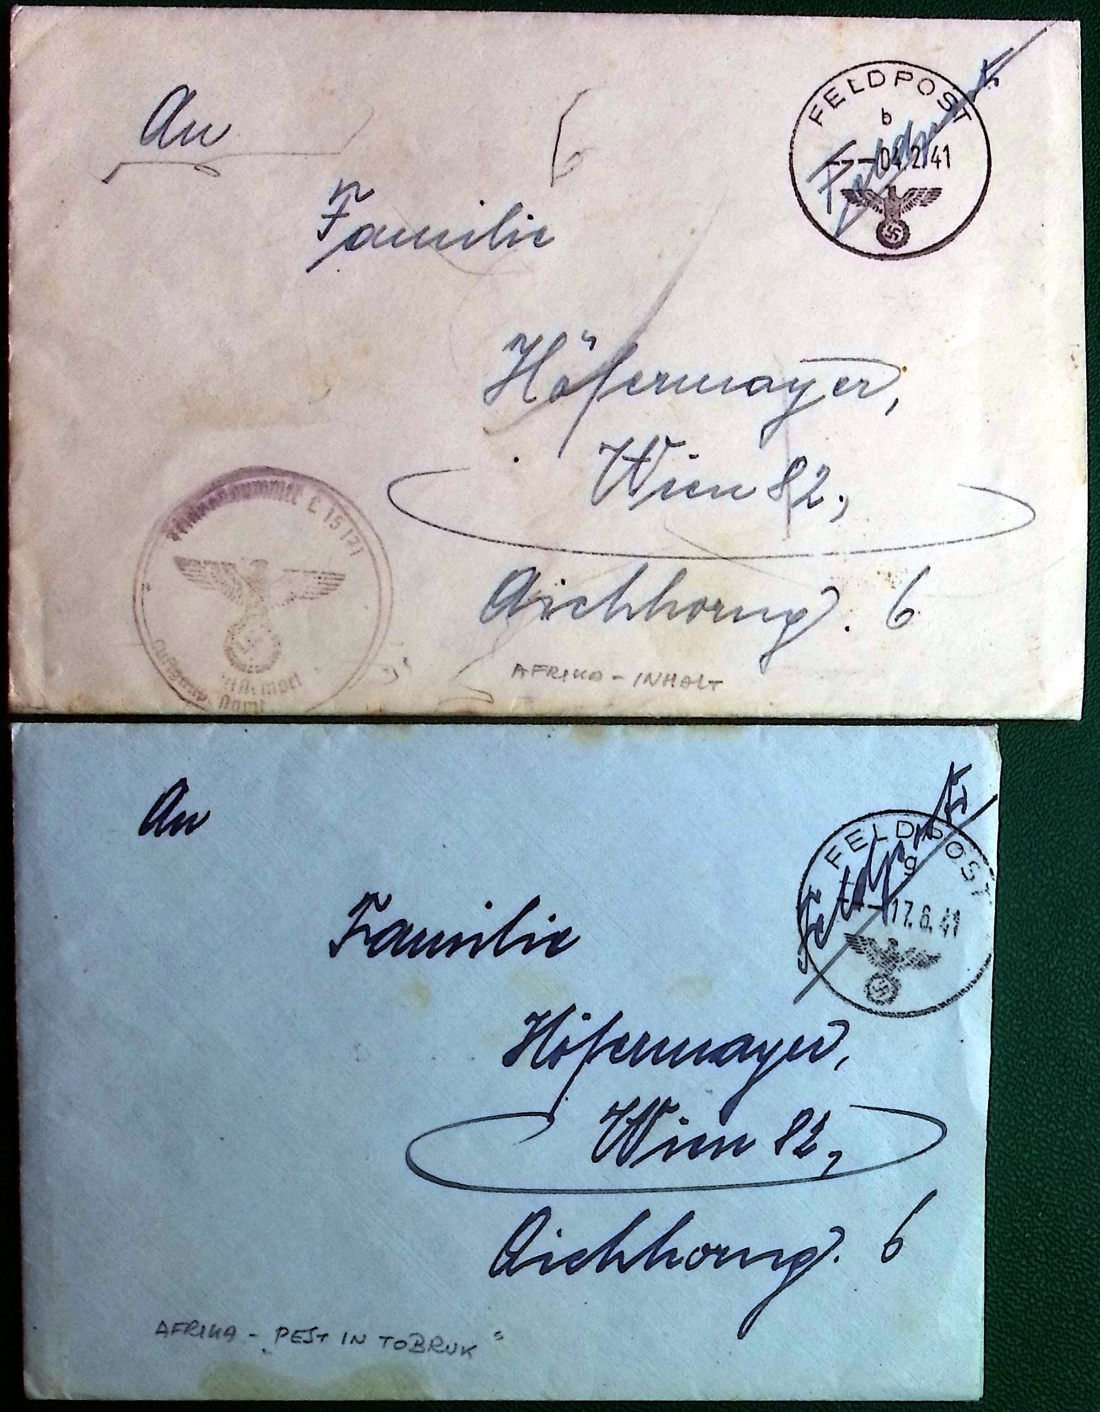 An
FELDPOST
b
Feldpost
04.2.41
Familie
Höfermayer,
Wien 82,
Aichhorng. 6
Feldpostnummer L 15171
AFRIKA - INHALT
An
FELDPOST
g
Feldpost
17.6.41
Familie
Höfermayer,
Wien 82,
Aichhorng. 6
AFRIKA - "PEST IN TOBRUK"